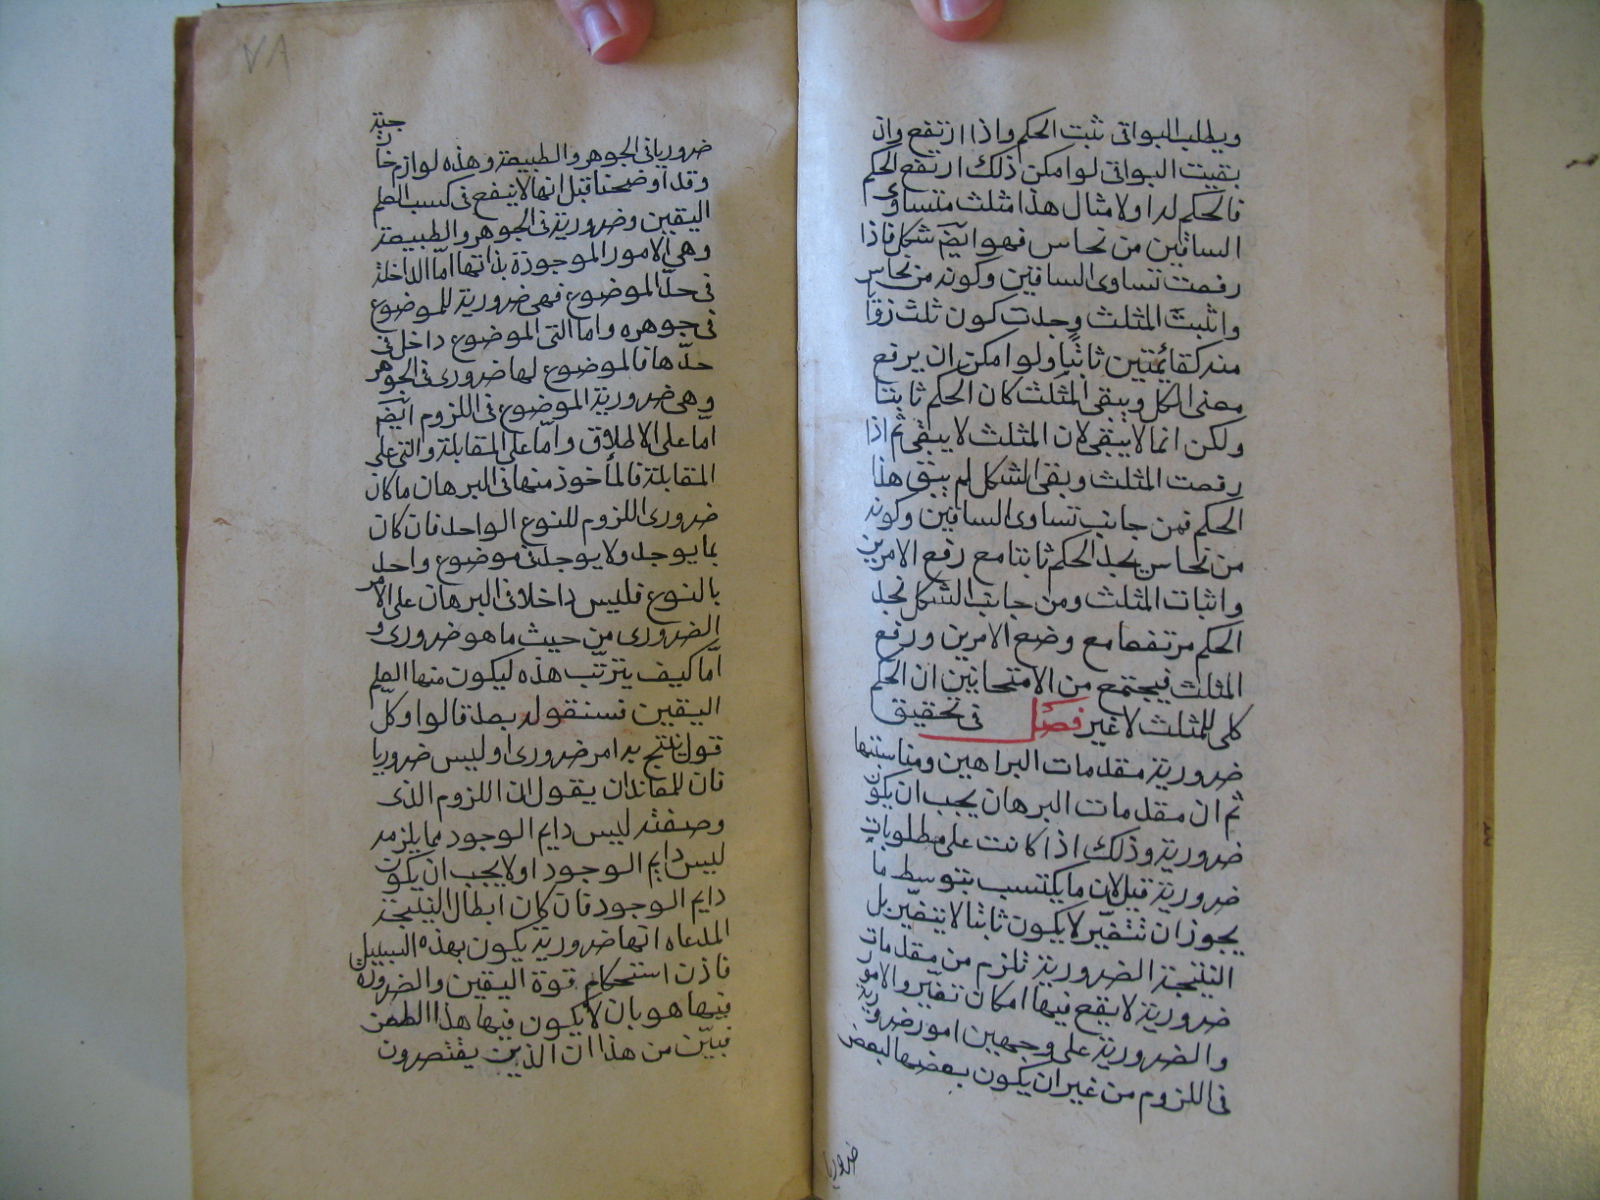 ويطلب البواقى ثبت الحكم واذا ارتفع وان
بقيت البواقى لو امكن ذلك ارتفع الحكم
فالحكم له اولا مثال هذا مثلث متساوى
الساقين من نحاس فهو ايضا شكل فاذا
رفعت تساوى الساقين وكونه من نحاس
واثبت المثلث وجدت كون ثلث زوايا
منه كقائمتين ثانيا ولو امكن ان يرفع
معنى الكل ويبقى المثلث كان الحكم ثابتا
ولكن انما لا يبقى لان المثلث لا يبقى ثم اذا
رفعت المثلث وبقى الشكل لم يبق هذا
الحكم فمن جانب تساوى الساقين وكونه
من نحاس يجد الحكم ثابتا مع رفع الامرين
واثبات المثلث ومن جانب الشكل نجد
الحكم مرتفعا مع وضع الامرين ورفع
المثلث فيجتمع من الامتحانين ان الحكم
كلى للمثلث لا غير فصل فى تحقيق
ضرورية مقدمات البراهين ومناسبتها
ثم ان مقدمات البرهان يجب ان يكون
ضرورية وذلك اذا كانت على مطلوبات
ضرورية قيل لان ما يكتسب بتوسط ما
يجوز ان تتغيّر لا يكون ثابتا لا يتغير بل
النتيجة الضرورية تلزم من مقدمات
ضرورية لا يقع فيها امكان تغيّر والامور
والضرورية على وجهين امور ضرورية
فى اللزوم من غير ان يكون بعضها لبعض
ضروريا
٧٨
ضروريا فى الجوهر والطبيعة وهذه لوازم خارجية
وقد اوضحنا قبل انها لا ينفع فى كسب العلم
اليقين وضرورية فى الجوهر والطبيعة
وهى الامور الموجودة بذاتها امّا الداخلة
فى حدّ الموضوع فهى ضرورية للموضوع
فى جوهره واما التى الموضوع داخل فى
حدّها فالموضوع لها ضرورى فى الجوهر
وهى ضرورية الموضوع فى اللزوم ايضا
امّا على الاطلاق وامّا على المقابلة والتى على
المقابلة فالمأخوذ منها فى البرهان ما كان
ضرورى اللزوم للنوع الواحد فان كان
بما يوجد ولا يوجد فى موضوع واحد
بالنوع فليس داخلا فى البرهان على الامر
الضرورى من حيث ما هو ضرورى و
امّا كيف يترتّب هذه ليكون منها العلم
اليقين فسنقوله بعد قالوا وكلّ
قول ينتج به امر ضرورى او ليس ضروريا
فان للمعاند ان يقول ان اللزوم الذى
وصفته ليس دايم الوجود مما يلزمه
ليس دايم الوجود او لا يجب ان يكون
دايم الوجود فان كان ابطال النتيجة
المدعاه انها ضرورية يكون بهذه السبيل
فاذن استحكام قوة اليقين والضرورة
فيها هو بان لا يكون فيها هذا الطعن
فبيّن من هذا ان الذين يقتصرون